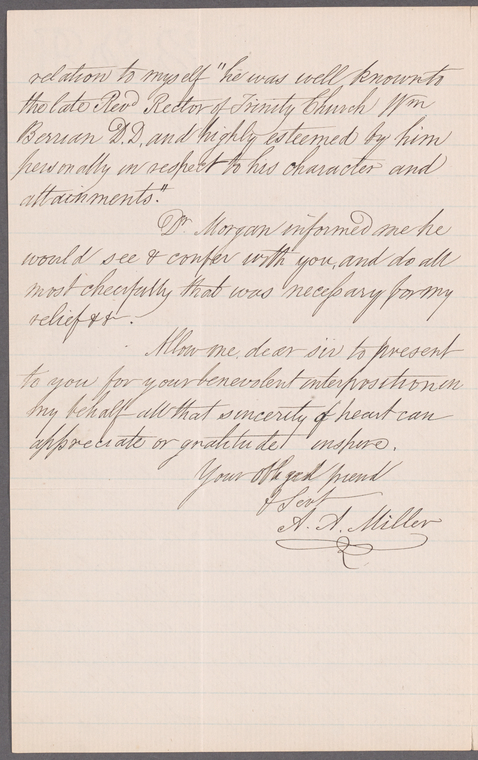 relation to myself "he was well known to
the late Revd Rector of Trinity Church Wm
Berrian D.D. and highly esteemed by him
personally in respect to his character and
attainments."
Dr Morgan informed me he
would see & confer with you, and do all
most cheerfully that was necessary for my
relief &&.
Allow me, dear sir to present
to you for your benevolent interposition in
my behalf all that sincerity of heart can
appreciate or gratitude inspire.
Your obliged friend
& Sert
A. A. Miller